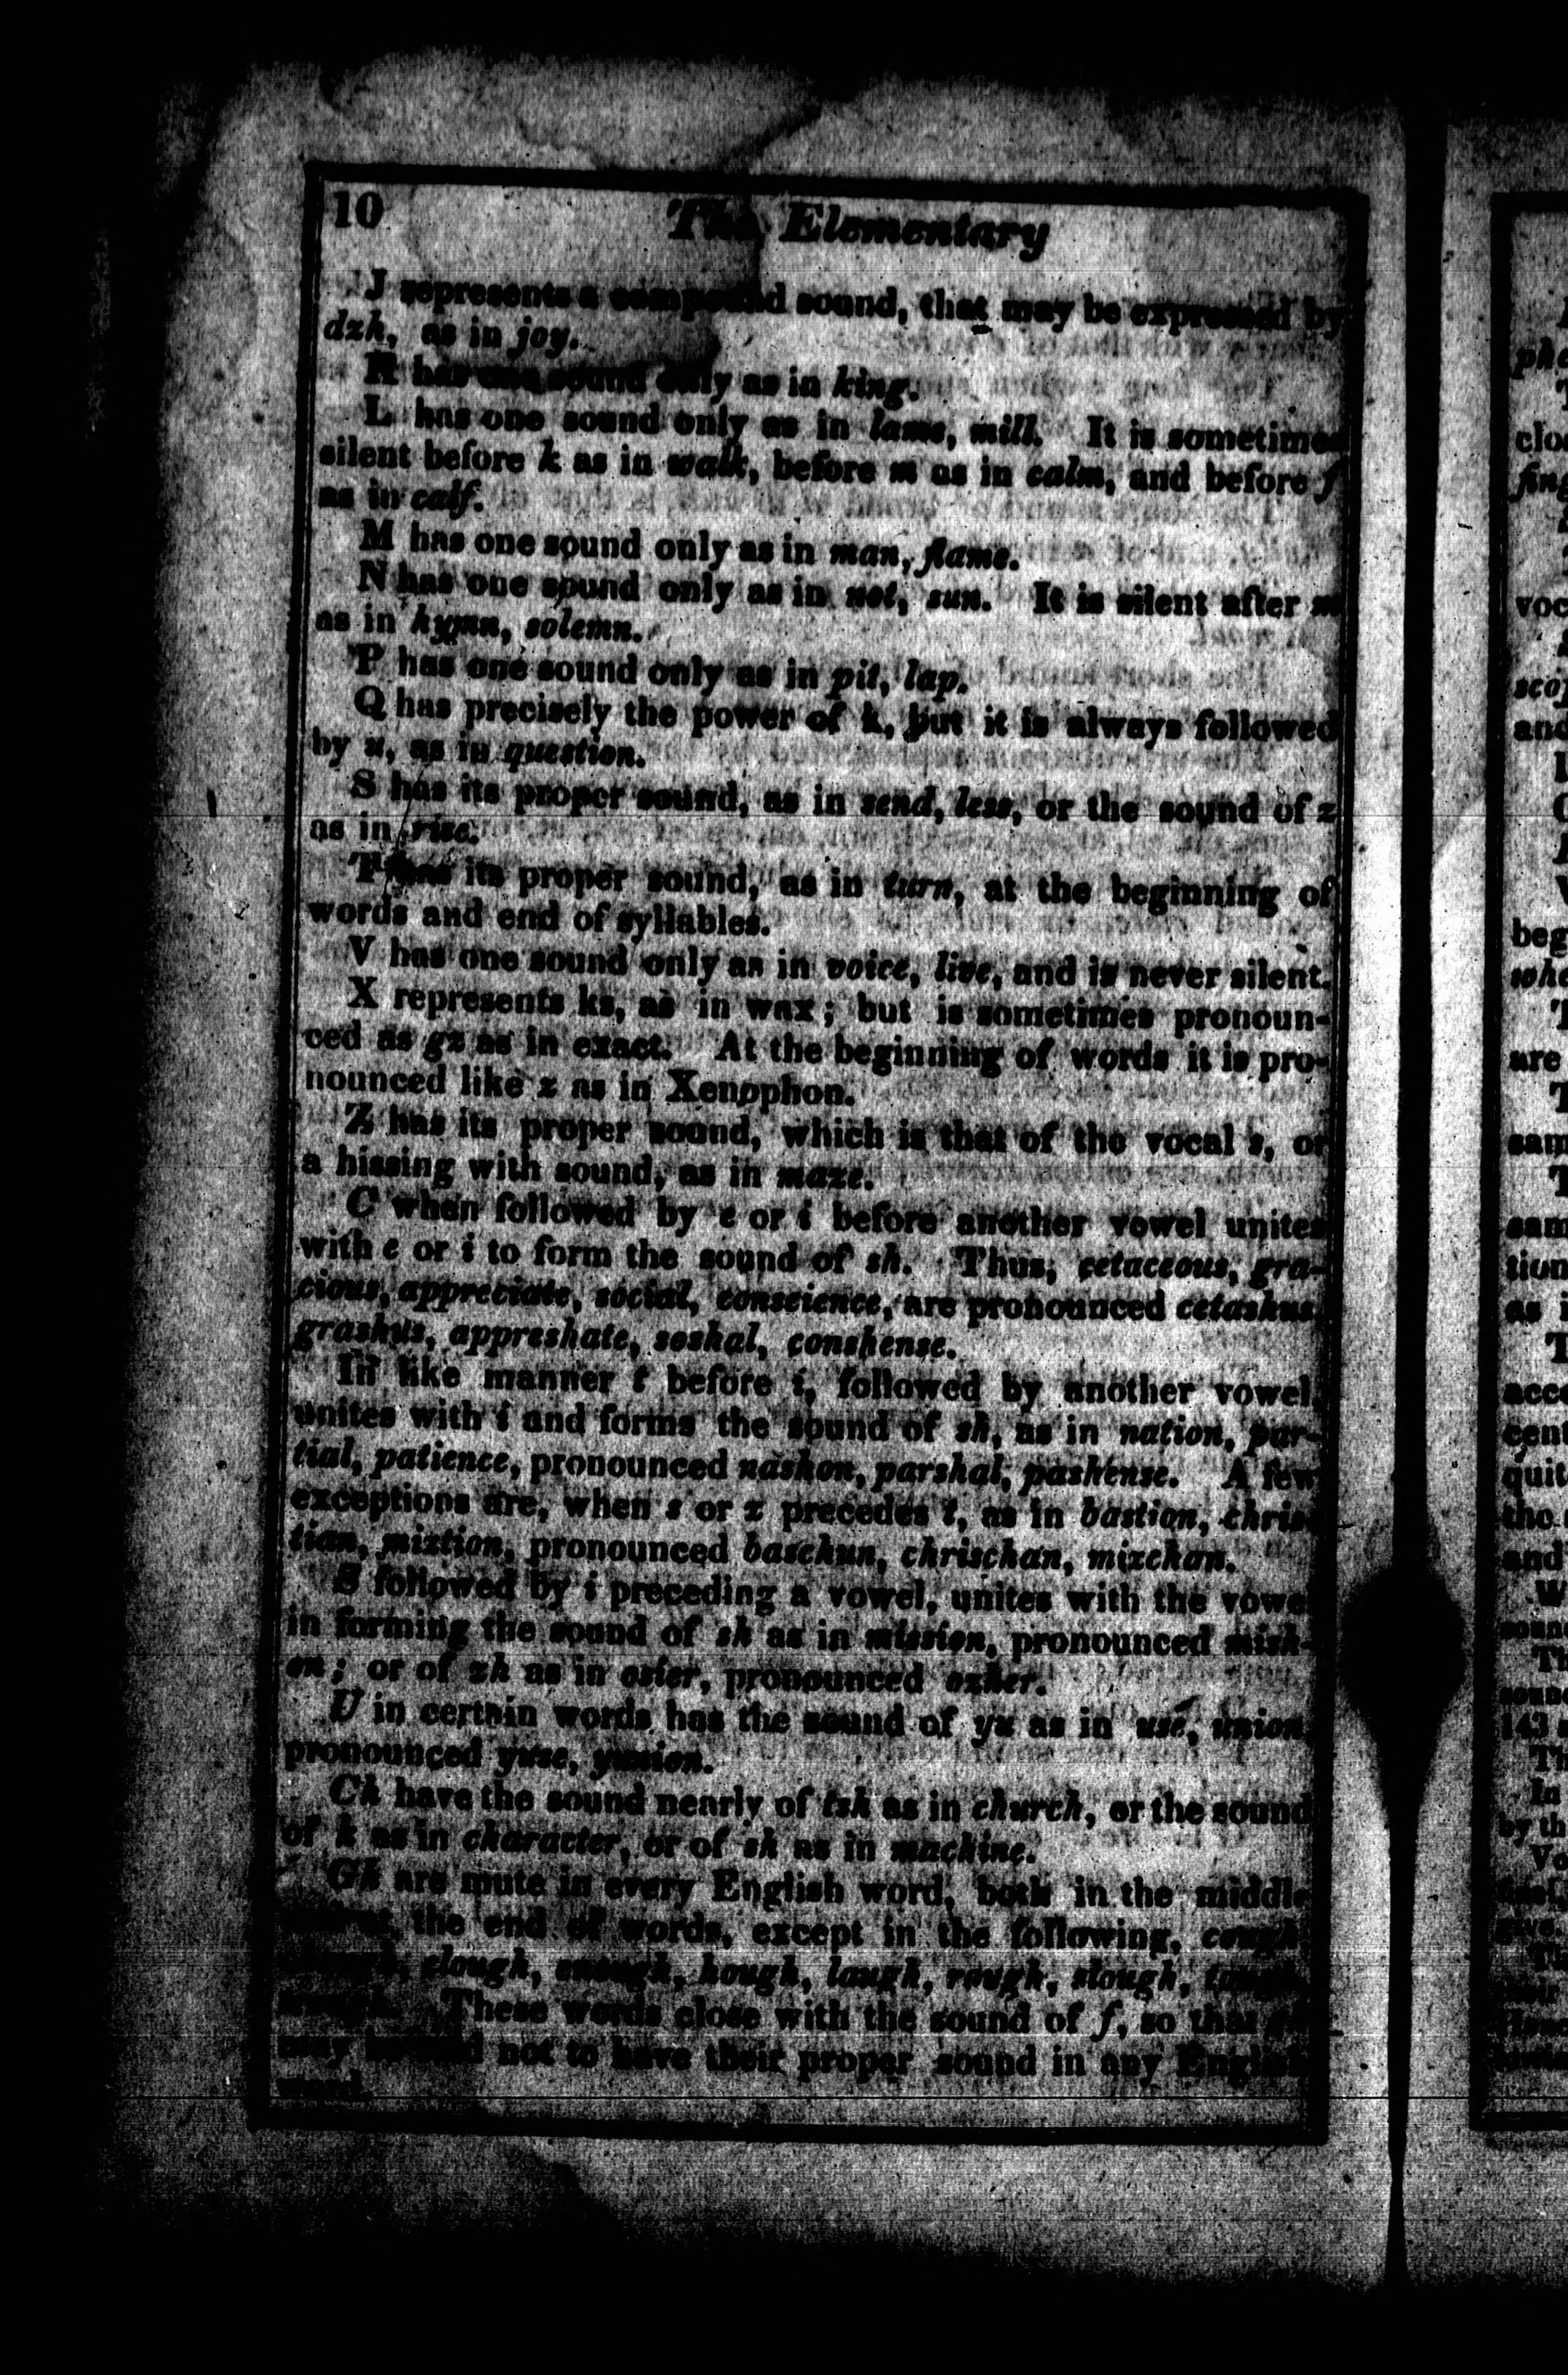 10 The Elementary
J represents a compound sound, that may be expressed by
dzh, as in joy.
K has one sound only as in king.
L has one sound only as in lame, mill. It is sometimes
silent before k as in walk, before m as in calm, and before f
as in calf.
M has one sound only as in man, flame.
N has one sound only as in not, sun. It is silent after m
as in hymn, solemn.
P has one sound only as in pit, lap.
Q has precisely the power of k, but it is always followed
by u, as in question.
S has its proper sound, as in send, less, or the sound of z
as in rise.
T has its proper sound, as in turn, at the beginning of
words and end of syllables.
V has one sound only as in voice, live, and is never silent.
X represents ks, as in wax; but is sometimes pronoun-
ced as gz as in exact. At the beginning of words it is pro-
nounced like z as in Xenophon.
Z has its proper sound, which is that of the vocal s, or
a hissing with sound, as in maze.
C when followed by e or i before another vowel unites
with e or i to form the sound of sh. Thus, cetaceous, gra-
cious, appreciate, social, conscience, are pronounced cetashus
grashus, appreshate, soshal, conshense.
In like manner t before i, followed by another vowel,
unites with i and forms the sound of sh, as in nation, par-
tial, patience, pronounced nashon, parshal, pashense. A few
exceptions are, when s or x precedes t, as in bastion, chris-
tian, mixtion, pronounced baschun, chrischan, mixchan.
S followed by i preceding a vowel, unites with the vowel
in forming the sound of sh as in mission, pronounced mish-
on; or of zh as in osier, pronounced ozher.
U in certain words has the sound of yu as in use, union,
pronounced yuse, yunion.
Ch have the sound nearly of tsh as in church, or the sound
of k as in character, or of sh as in machine.
Gh are mute in every English word, both in the middle
the end of words, except in the following, cough,
clough, enough, hough, laugh, rough, slough, tough,
These words close with the sound of f, so that gh
may not to have their proper sound in any English
word.